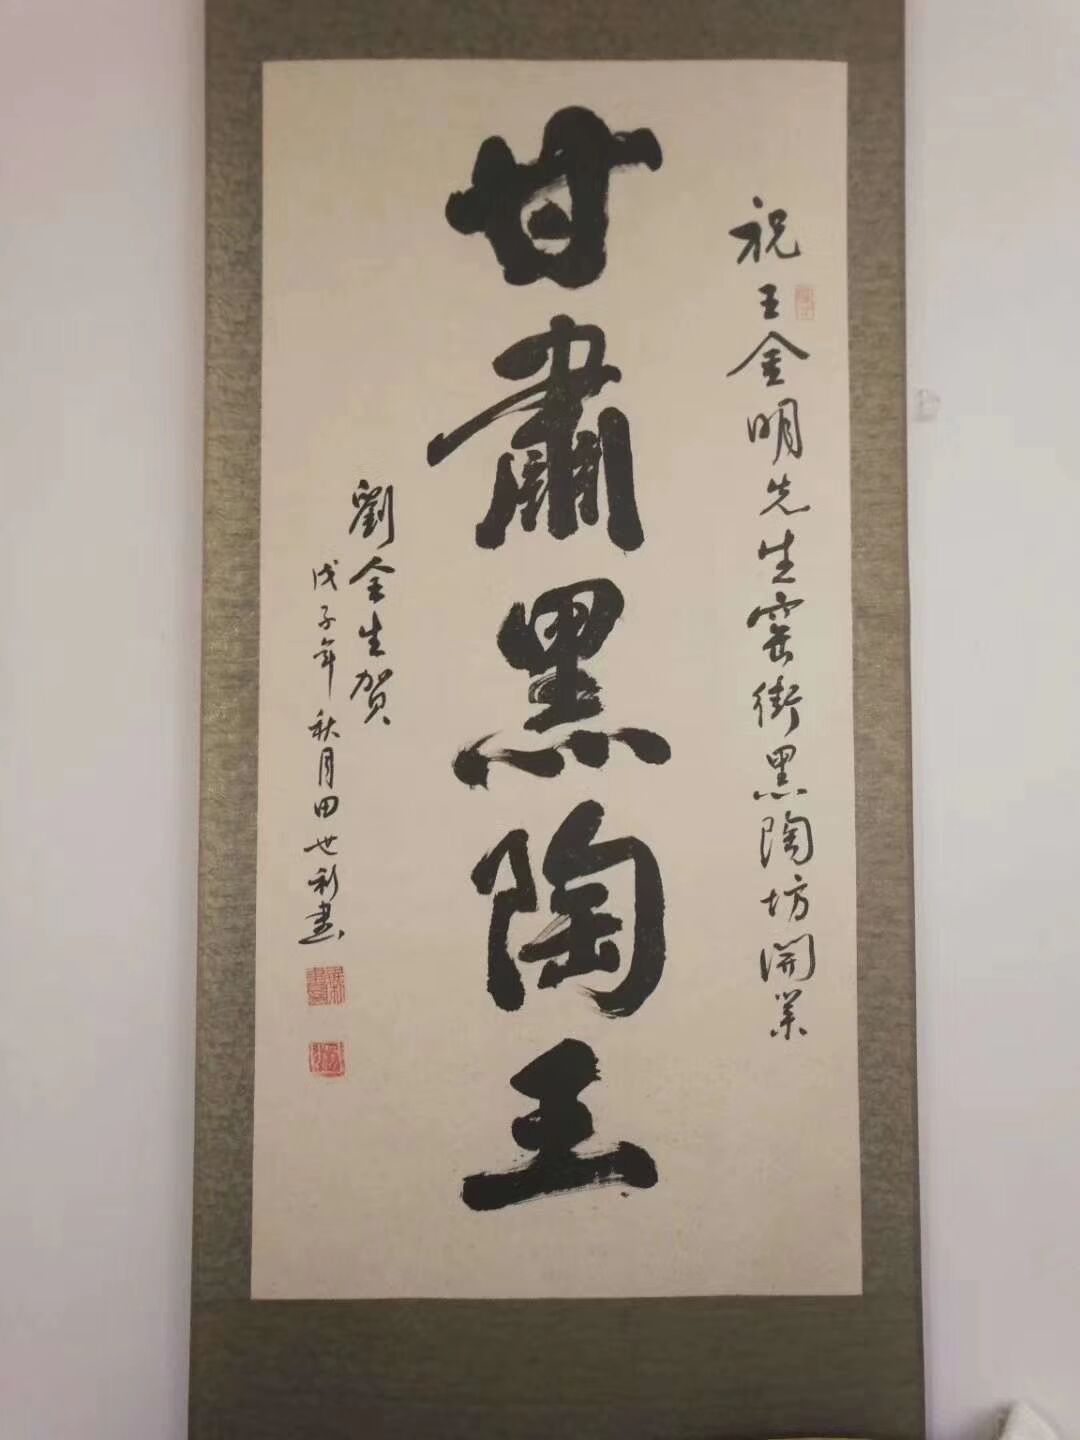 祝王金明先生窑街黑陶坊開業
甘肅黑陶王
劉金生賀
戊子年秋月田世利書